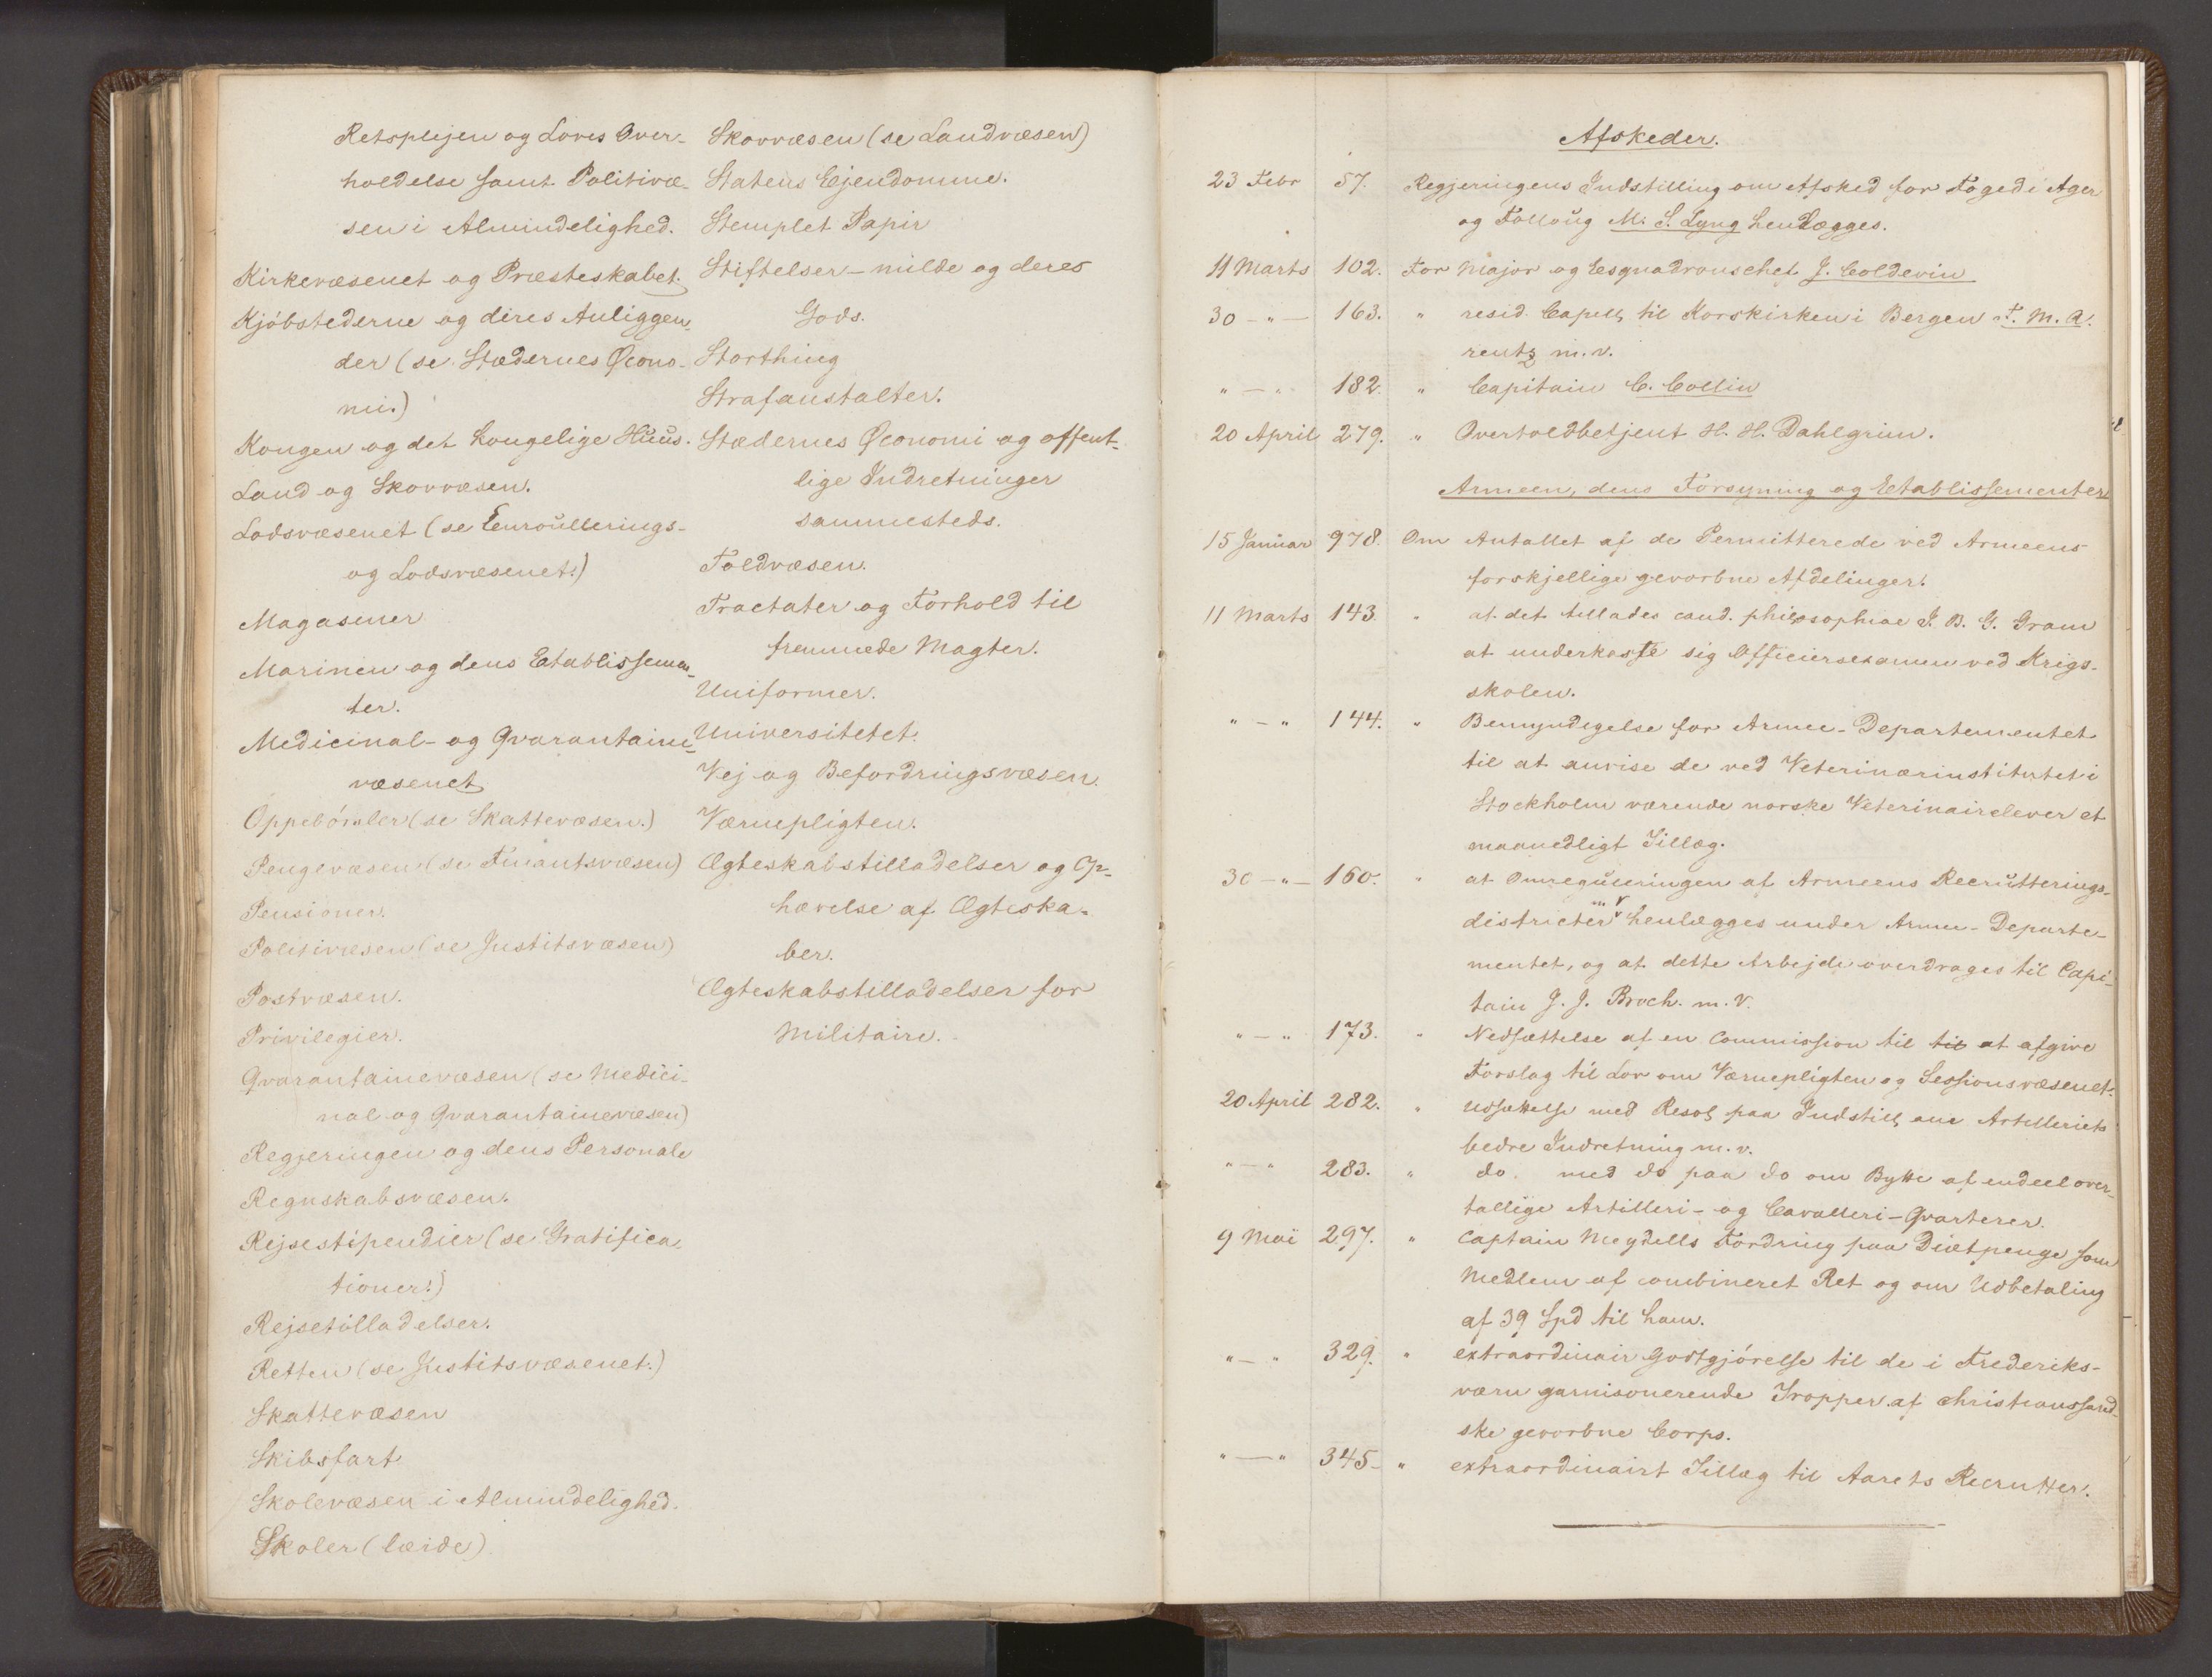 Retsplejen og Loves Over-
holdelse samt Politivæ-
sen i Almindelighed.
Kirkevæsenet og Præsteskabet.
Kjöbstederne og deres Anliggen-
der (se Stædernes Øcono-
mi.)
Kongen og det kongelige Huus.
Land og Skovvæsen.
Lodsvæsenet (se Enroullerings-
og Lodsvæsenet.)
Magasiner
Marinen og dens Etablissemen-
ter.
Medicinal- og Qvarantaine-
væsenet
Oppebörsler (se Skattevæsen.)
Pengevæsen (se Finantsvæsen)
Pensioner.
Politivæsen (se Justitsvæsen)
Postvæsen.
Privilegier.
Qvarantainevæsen (se Medici-
nal og Qvarantainevæsen)
Regjeringen og dens Personale
Regnskabsvæsen.
Rejsestipendier (se Gratifica-
tioner.)
Rejsetilladelser.
Retten (se Justitsvæsenet.)
Skattevæsen
Skibsfart
Skolevæsen i Almindelighed.
Skoler (lærde)
Skovvæsen (se Landvæsen)
Statens Ejendomme.
Stemplet Papir
Stiftelser – milde og deres
Gods.
Storthing
Strafanstalter.
Stædernes Øconomi og offent-
lige Indretninger
sammesteds.
Toldvæsen.
Tractater og Forhold til
fremmede Magter.
Uniformer.
Universitetet.
Vej og Befordringsvæsen.
Værnepligten.
Ægteskabstilladelser og Op-
hævelse af Ægteska-
ber.
Ægteskabstilladelser for
Militaire.
Afskeder.
23 Febr 57. Regjeringens Indstilling om Afsked for Foged i Ager
og Folloug M. S. Lyng henlægges.
11 Marts 102. For Major og Esquadronschef J. Coldevin
30 – " – 163. " resid. Capell. til Korskirken i Bergen F. M. A.
rentz m.v.
" – " 182. " Capitain C. Collin
20 April 279. " Overtoldbetjent H. H. Dahlgrün.
Armeen, dens Forsyning og Etablissementer
15 Januar 978. Om Antallet af de Permitterede ved Armeens
forskjellige gevorbne Afdelinger.
11 Marts 143. " at det tillades cand. philosophiae J. B. G. Gram
at underkaste sig Officiersexamen ved Krigs-
skolen.
" – " 144. " Bemyndigelse for Armee-Departementet
til at anvise de ved Veterinærinstitutet i
Stockholm værende norske Veterinairelever et
maanedligt Tillæg.
30 – " – 160. " at Omreguleringen af Armeens Recrutterings-
districter m v henlægges under Armee-Departe-
mentet, og at dette Arbejde overdrages til Capi-
tain J. J. Broch. m. v.
" – " 173. " Nedsættelse af en Commission til til at afgive
Forslag til Lov om Værnepligten og Sessionsvæsenet.
20 April 282. " Udsættelse med Resol. paa Indstill. om Artilleriets
bedre Indretning m. v.
" – " 283. " do. med do paa do om Bytte af endeel over-
tallige Artilleri- og Cavalleri-Qvarterer.
9 Mai 297. " Captain Meydells Fordring paa Diætpenge som
Medlem af combineret Ret og om Udbetaling
af 39 Spd til ham.
" – " 329. " extraordinair Godtgjörelse til de i Frederiks-
værn garnisonerende Tropper af Christianssand-
ske gevorbne Corps.
" – " 345– " extraordinairt Tillæg til Aarets Recrutter.